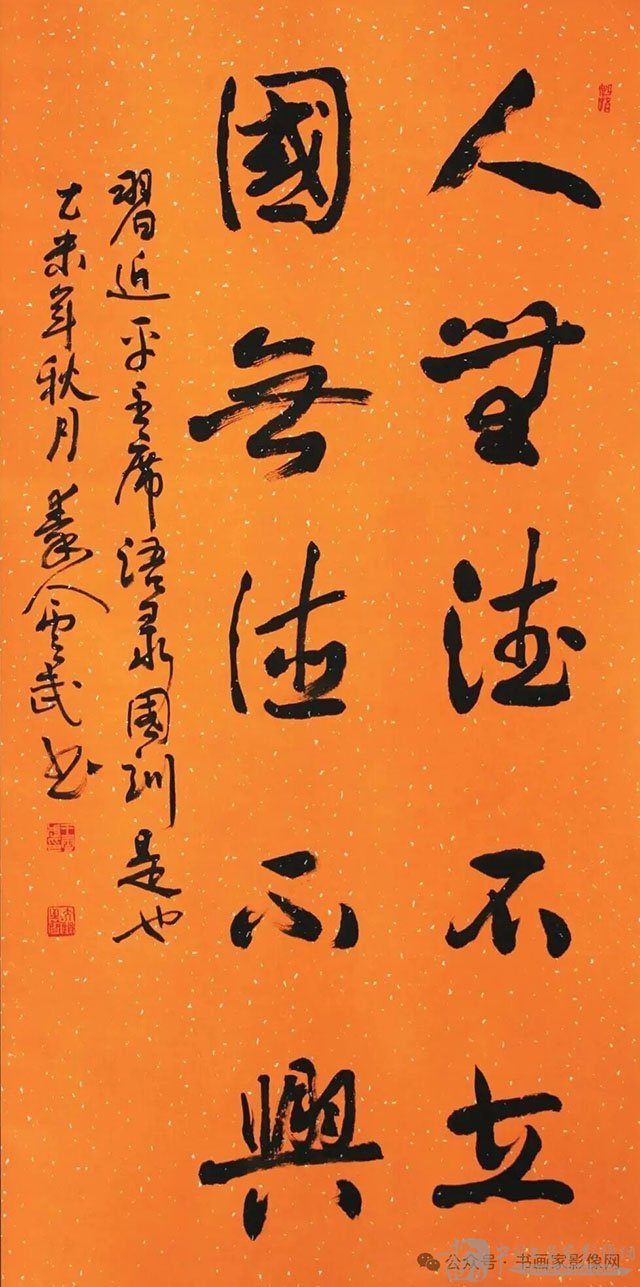 人無德不立
國無德不興
習近平主席语录国训是也
乙未年秋月 云武书
公众号·书画家影像网